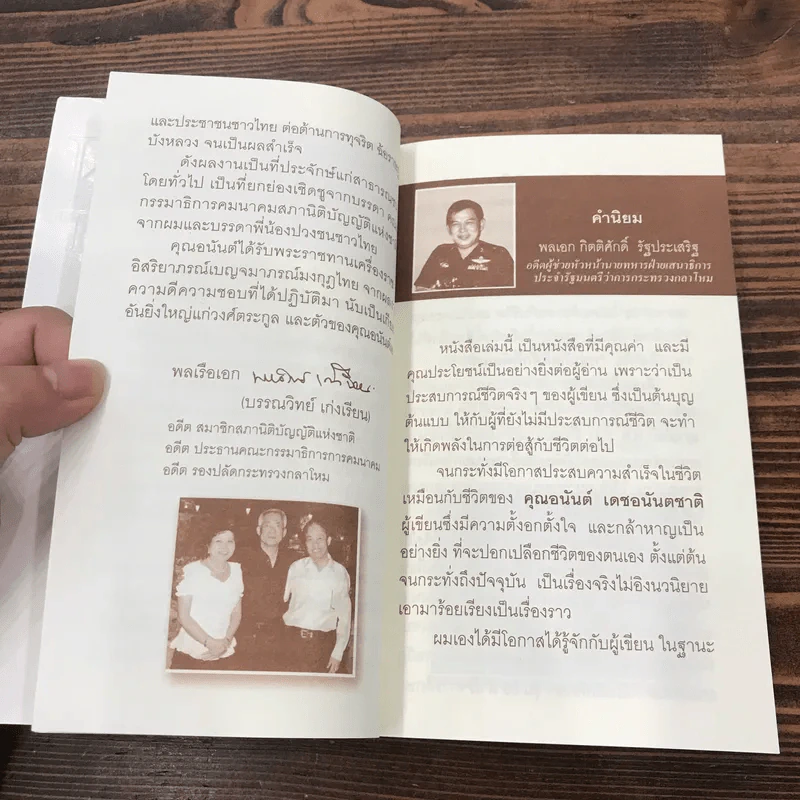 และประชาชนชาวไทย ต่อต้านการทุจริต
บังหลวง จนเป็นผลสำเร็จ
ดังผลงานเป็นที่ประจักษ์แก่สาธารณชน
โดยทั่วไป เป็นที่ยกย่องเชิดชูจากบรรดา
กรรมาธิการคมนาคมสภานิติบัญญัติแห่ง
จากผมและบรรดาพี่น้องปวงชนชาวไทย
คุณอนันต์ได้รับพระราชทานเครื่องราช
อิสริยาภรณ์เบญจมาภรณ์มงกุฎไทย
ความดีความชอบที่ได้ปฏิบัติมา นับเป็น
อันยิ่งใหญ่แก่วงศ์ตระกูล และตัวของคุณอนันต์
พลเรือเอก
(บรรณวิทย์ เก่งเรียน)
อดีต สมาชิกสภานิติบัญญัติแห่งชาติ
อดีต ประธานคณะกรรมาธิการการคมนาคม
อดีต รองปลัดกระทรวงกลาโหม
คำนิยม
พลเอก กิตติศักดิ์ รัฐประเสริฐ
อดีตผู้ช่วยหัวหน้านายทหารฝ่ายเสนาธิการ
ประจำรัฐมนตรีว่าการกระทรวงกลาโหม
หนังสือเล่มนี้ เป็นหนังสือที่มีคุณค่า และมี
คุณประโยชน์เป็นอย่างยิ่งต่อผู้อ่าน เพราะว่าเป็น
ประสบการณ์ชีวิตจริงๆ ของผู้เขียน ซึ่งเป็นต้นบุญ
ต้นแบบ ให้กับผู้ที่ยังไม่มีประสบการณ์ชีวิต จะทำ
ให้เกิดพลังในการต่อสู้กับชีวิตต่อไป
จนกระทั่งมีโอกาสประสบความสำเร็จในชีวิต
เหมือนกับชีวิตของ คุณอนันต์ เดชอนันตชาติ
ผู้เขียนซึ่งมีความตั้งอกตั้งใจ และกล้าหาญเป็น
อย่างยิ่ง ที่จะปอกเปลือกชีวิตของตนเอง ตั้งแต่ต้น
จนกระทั่งถึงปัจจุบัน เป็นเรื่องจริงไม่อิงนวนิยาย
เอามาร้อยเรียงเป็นเรื่องราว
ผมเองได้มีโอกาสได้รู้จักกับผู้เขียน ในฐานะ